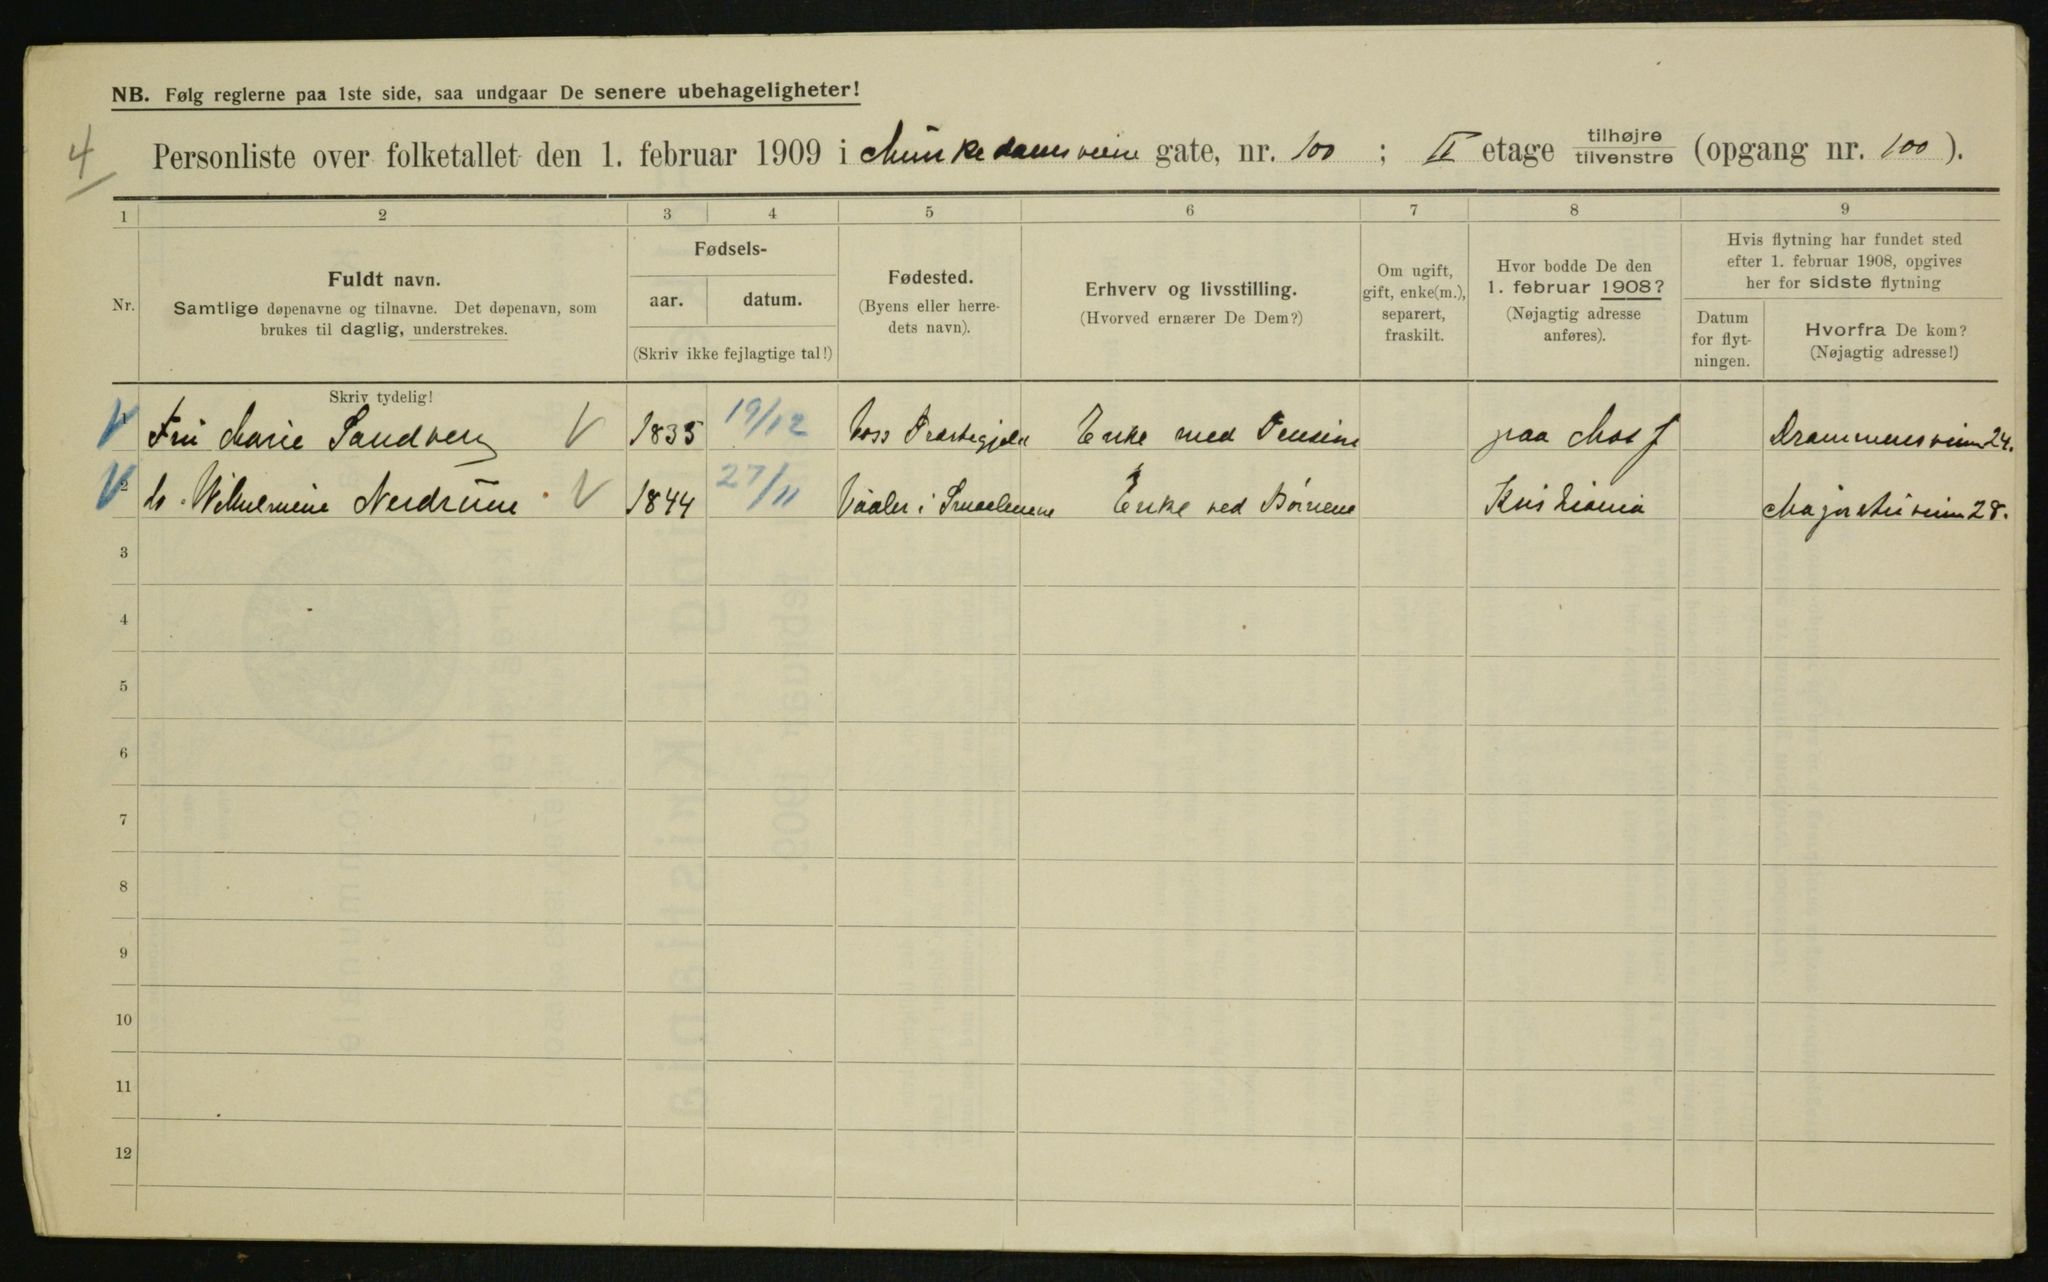 NB. Følg reglerne paa 1ste side, saa undgaar De senere ubehageligheter!
4
Personliste over folketallet den 1. februar 1909 i Munkedamsveien gate, nr. 100 ; II etage tilhøjre tilvenstre (opgang nr. 100 ).
1 2 3 4 5 6 7 8 9
Nr.
Fuldt navn.
Samtlige døpenavne og tilnavne. Det døpenavn, som
brukes til daglig, understrekes.
Fødsels-
aar. datum.
(Skriv ikke fejlagtige tal!)
Fødested.
(Byens eller herre-
dets navn).
Erhverv og livsstilling.
(Hvorved ernærer De Dem?)
Om ugift,
gift, enke(m.),
separert,
fraskilt.
Hvor bodde De den
1. februar 1908?
(Nøjagtig adresse
anføres).
Hvis flytning har fundet sted
efter 1. februar 1908, opgives
her for sidste flytning
Datum
for flyt-
ningen.
Hvorfra De kom?
(Nøjagtig adresse!)
Skriv tydelig!
1 Fru Marie Sandberg V 1835 19/12 Voss Præstegjeld Enke med Pension paa Drammensveien 24.
2 Wilhelmine Nerdrum V 1844 27/11 Vaaler i Smaalenene Enke ved Børnene Kristiania Majorstuveien 28.
3
4
5
6
7
8
9
10
11
12